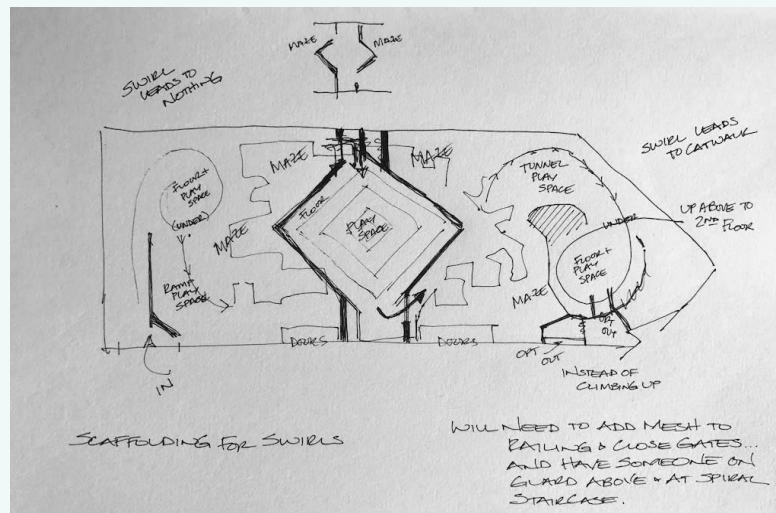 MAZE
MAZE
SWIRL
LEADS TO
NOTHING
SWIRL LEADS
TO CATWALK
MAZE
MAZE
TUNNEL
PLAY
SPACE
FLOOR +
PLAY
SPACE
(UNDER)
FLOOR
PLAY
SPACE
UNDER
UP ABOVE TO
2ND FLOOR
MAZE
FLOOR +
PLAY
SPACE
RAMP
PLAY
SPACE
MAZE
OPT
OUT
DOORS
DOORS
OPT
OUT
IN
INSTEAD OF
CLIMBING UP
SCAFFOLDING FOR SWIRLS
WILL NEED TO ADD MESH TO
RAILING & CLOSE GATES...
AND HAVE SOMEONE ON
GUARD ABOVE & AT SPIRAL
STAIRCASE.